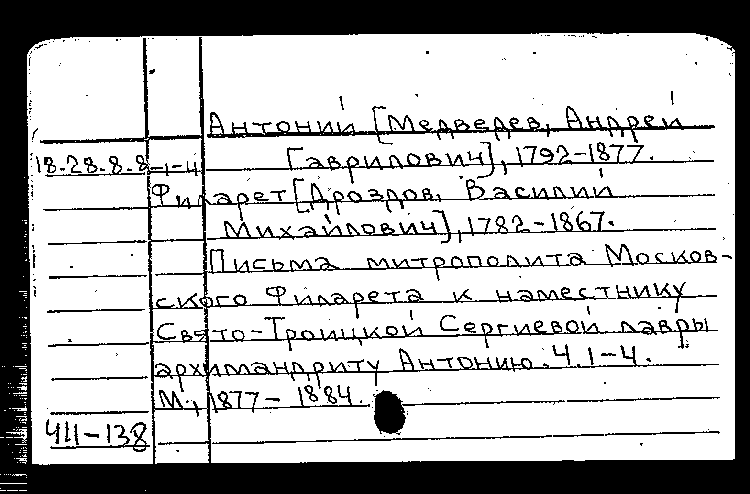 Антоний [Медведев, Андрей
18.28.8.8-1-4 Гаврилович], 1792-1877.
Филарет [Дроздов, Василий
Михайлович], 1782-1867.
Письма митрополита Москов-
ского Филарета к наместнику
Свято-Троицкой Сергиевой лавры
архимандриту Антонию. Ч. 1-4.
М., 1877-1884.
411-138